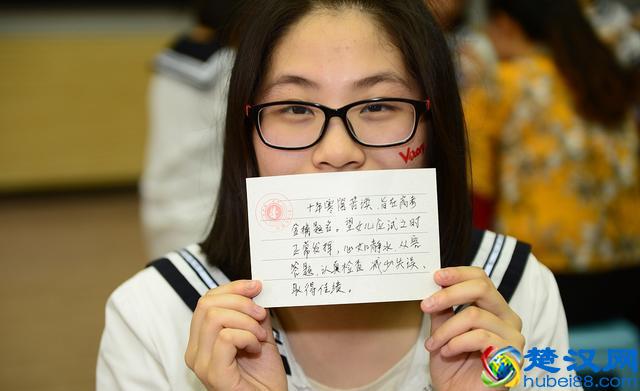 十年寒窗苦读，旨在高考
金榜题名。望女儿应试之时
正常发挥，心如静水，从容
答题，认真检查，减少失误，
取得佳绩。
楚汉网
hubei88.com